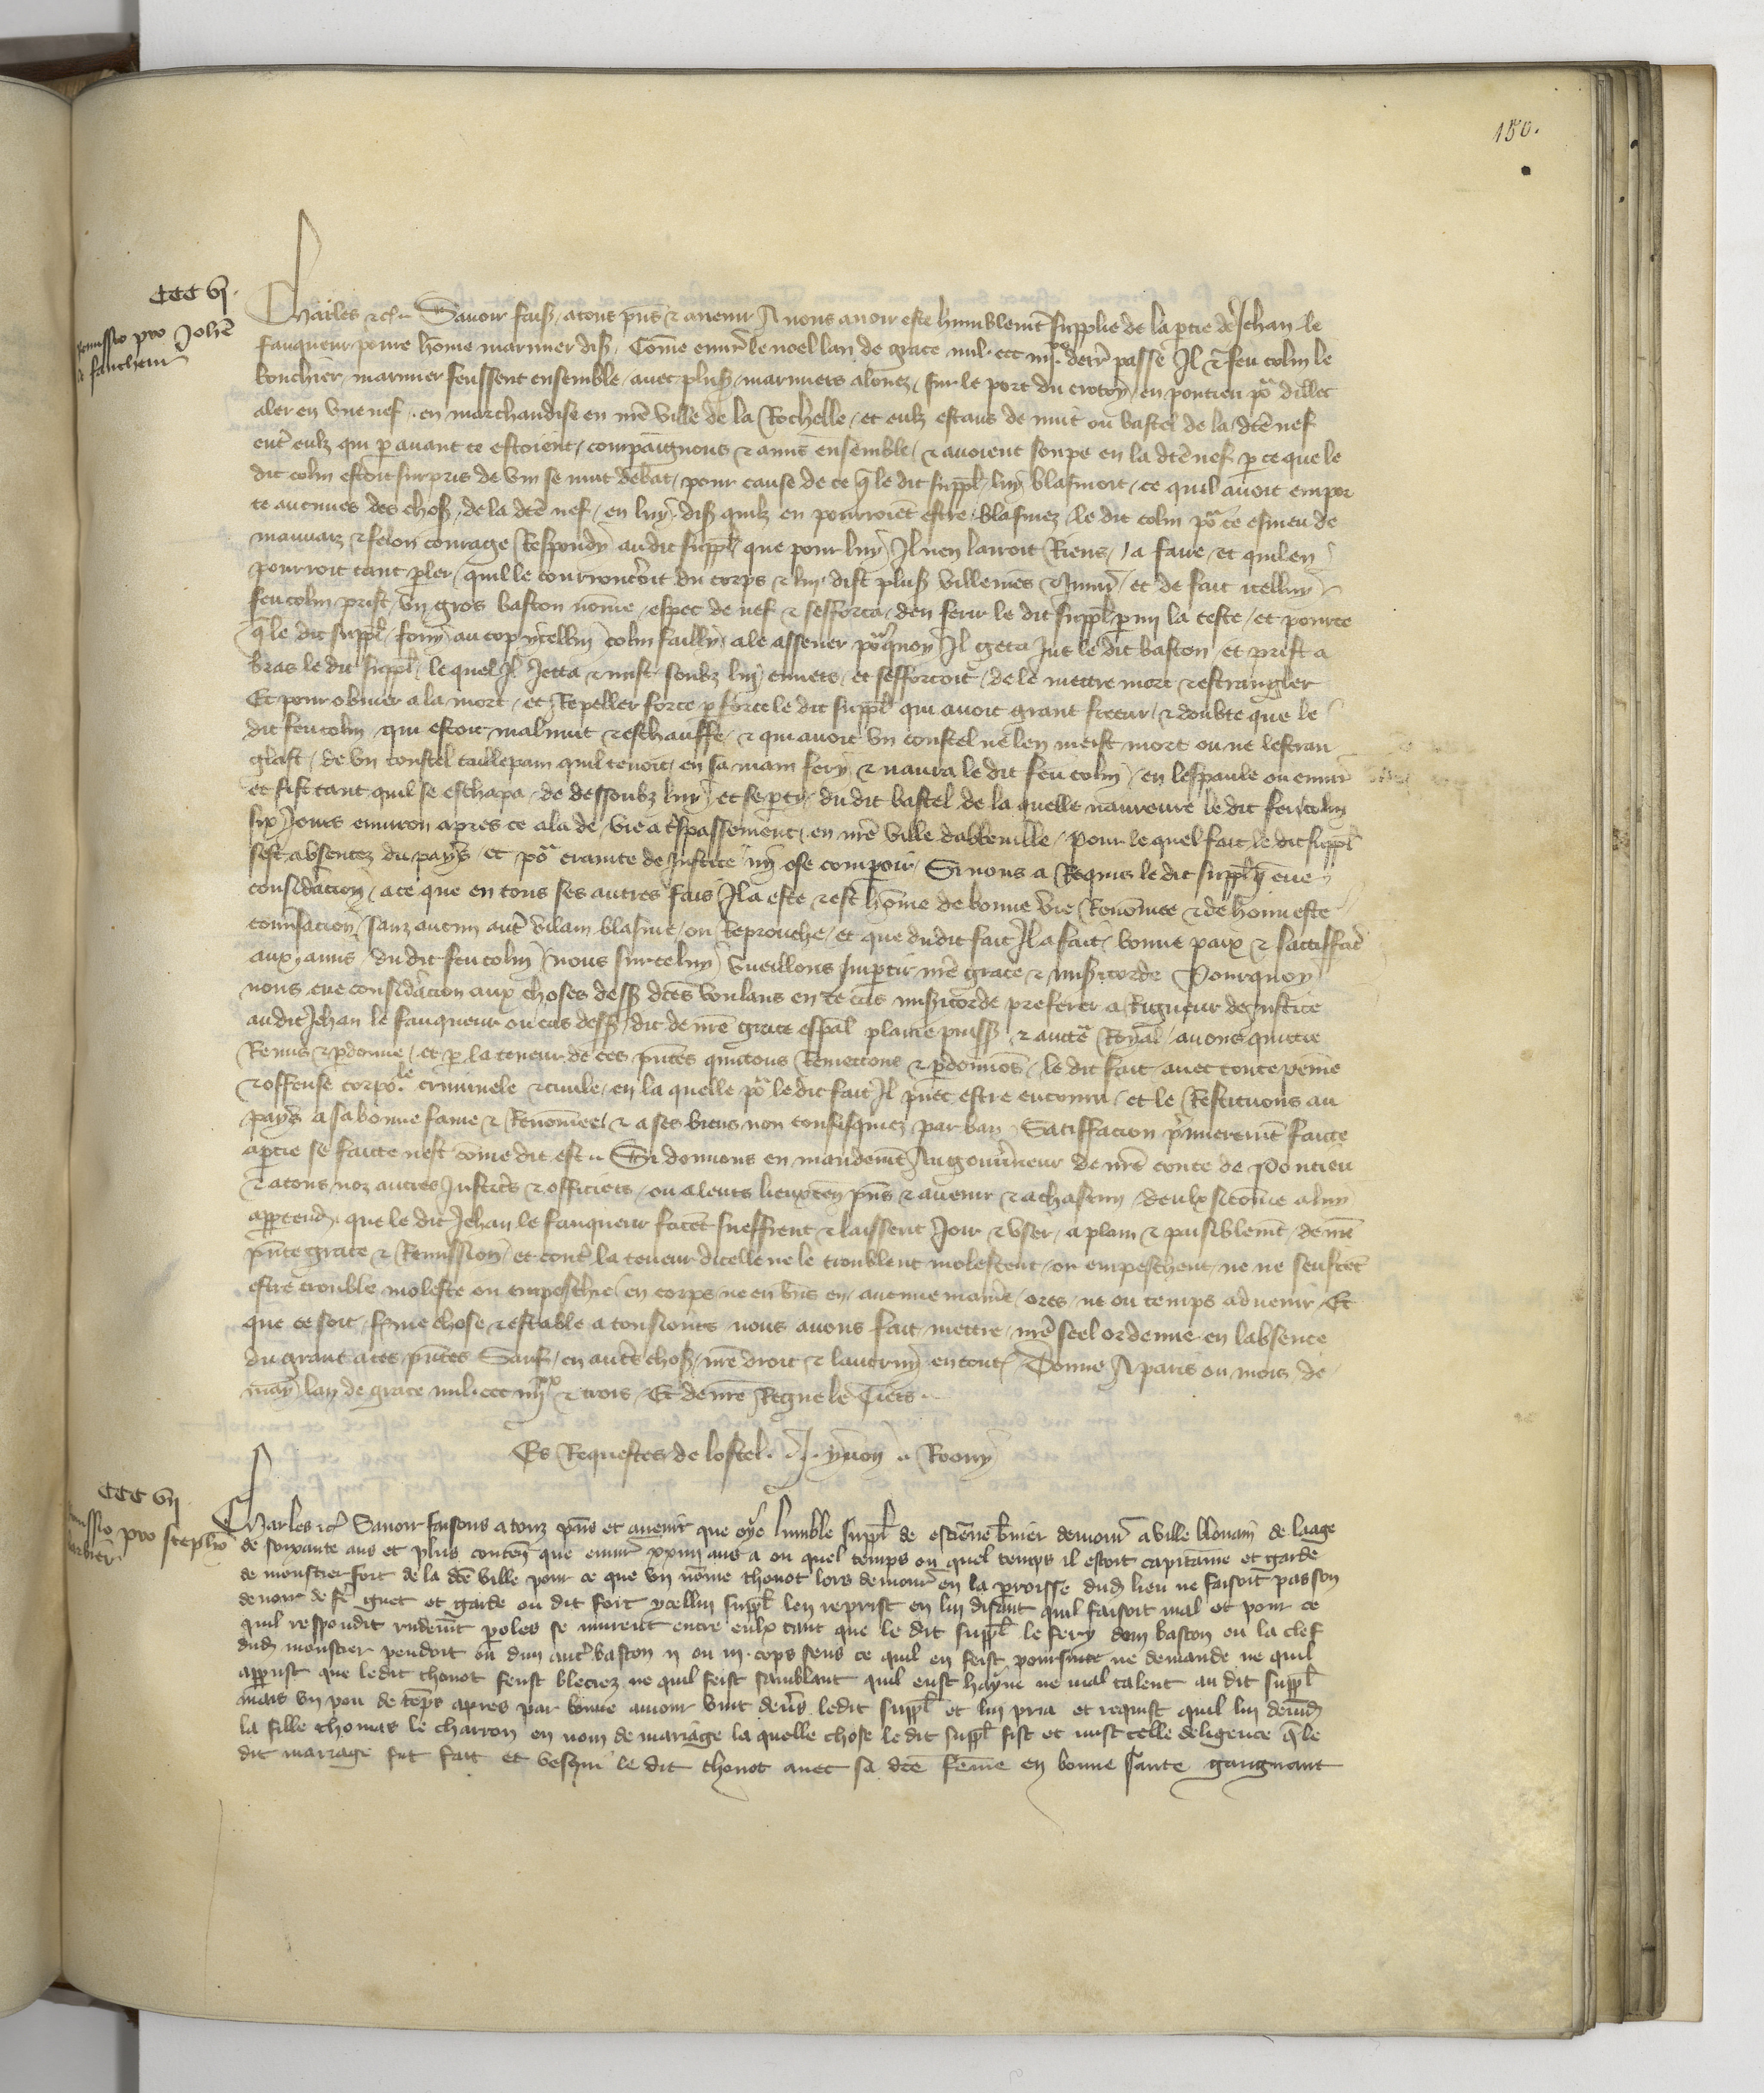 150.
CCC vj.
Remissio pro Johẽ
le faucheur
Charles etc. Savoir faisõs atous p̃ns et avenir A nous avoir este humblem̃t supplie de la p̃tie de Jehan le
fauqueur povre hõme marinier dis. Cõme envir̃ le noel lan de grace mil ccc iiijxx derr̃ passe Il et feu colin le
bouchier marinier feussent ensemble avec plus̃ mariniers alouez sur le port du crotoy en pontieu por̃ dillec
aler en une nef en marchandise en nr̃e ville de la Rochelle et eulz estans de nuit ou bastel de la dc̃e nef
entr̃ eulz qui p avant ce estoient compaignons et amis ensemble et avoient soupe en la dc̃e nef p ce que le
dit colin estoit surpris de vin se mut debat pour cause de ce q̃ le dit suppl̃ luy blasmoit ce quil avoit empor
te aucunes des chos̃ de la dc̃e nef en luy dis quilz en pourroiẽt estre blasmez le dit colin por̃ ce esmeu de
mauvaiz et felon courage Respondy audit suppl̃ que pour luy Il nen lairoit Riens a faire et quil en
pourroit tant pler quil le courrouceroit du corps et luy dist plus̃ villenies et Iniur̃ et de fait icelluy
feu colin prist un gros baston nõme espec de nef et sefforca den ferir le dit suppl̃ p my la teste et pource
q̃ le dit suppl̃ fouy au cop ycelluy colin failly a le assener por̃quoy Il geta jus le dit baston et prist a
bras le dit suppl̃ le quel Il Jetta et mist soubz luy envers et sefforcoit de le mettre mort et estrangler
Et pour obvier a la mort et Repeller force p force le dit suppl̃ qui avoit grant freeur et doubte que le
dit feu colin qui estoit malmut et eschauffe et qui avoit un coustel ne len meist mort ou ne lestran
glast de un coustel taillepain quil tenoit en sa main fery et navra le dit feu colin en lespaule ou envir̃
et fist tant quil se eschapa de dessoubz luy et se pty du dit bastel de la quelle navreure le dit feu colin
six Jours environ apres ce ala de vie a tr̃spassement en nr̃e ville dabbeville Pour le quel fait le dit suppl̃
sest absentez du pays et por̃ crainte de Justice ny ose compoir Si nous a Requis le dit suppl̃ q̃ eue
consid̃acion a ce que en tous ses autres fais Il a este et est hõme de bonne vie Renõmee et de honneste
conṽsacion sanz aucun autr̃ vilain blasme ou Reprouche et que dudit fait Il a fait bonne paix et sattiffac̃
aux amis du dit feu colin nous sur ce luy vueillons Impartir nr̃e grace et mis̃icorde Pourquoy
nous eue consid̃acion aux choses dess̃ dc̃es voulans en ce cas mis̃icorde preferer a Rigueur de Justice
au dit Jehan le fauqueur ou cas dess̃ dit de nr̃e grace esp̃al plaine puiss̃ et auctr̃ Royal avons quittie
Remis et pdonne et p la teneur de ces pñtes quictons Remettons et pdonnõs le dit fait avec toute peine
et offense corpõle criminele et civile en la quelle por̃ le dit fait Il puet estre encouru et le Restituons au
pays a sa bonne fame et Renõmee et a ses biens non confisquiez par ban Satiffacion p̃mierem̃t faicte
a p̃tie se faicte nest cõme dit est Si donnons en mandem̃t Au gouṽneur de nr̃e conte de Pontieu
et a tous noz autres Justic̃s et officiers ou a leurs lieuxten̄ p̃ns et avenir et a chascun deulx si cõme a luy
apptend̃ que le dit Jehan le fauqueur facẽt sueffrent et laissent Joir et user a plain et paisiblem̃t de nr̃e
p̃nte grace et Remission et contr̃ la teneur dicelle ne le troublent molestent ou empeschent ne ne seuffrẽt
estre trouble moleste ou empeschie en corps ne en b̃ns en aucune manie ores ne ou temps advenir Et
que ce soit f̃me chose et estable a tousiours nous avons fait mettre nr̃e seel ordenne en labsence
du grant a ces p̃ntes Sauf en autr̃s chos̃ nr̃e droit et lautruy en tout Donne A paris ou mois de
may lan de grace mil ccc iiijxx et trois Et de nr̃e Regne le Tiers
Es Requestes de lostel. J. yvon. Roony
CCC vij
Remissio pro stephõ
barbier
Charles etc Savoir faisons a touz p̃ns et avenir que oye lumble suppl̃ de estienne b̃bier demour̃ a ville blovain de laage
de soixante ans et plus conten̄ que envir̃ xxiiij ans a ou quel temps ou quel temps il estoit capitaine et garde
de moustier fort de la dc̃e ville pour ce que un nõme thenot lors demour̃ en la p̃roisse dud̃ lieu ne faisoit pas son
devoir de fr̃ guet et garde ou dit fort ycellui suppl̃ len reprist en lui disant quil faisoit mal et pour ce
quil respondit rudem̃t poles se murent entre eulx tant que le dit suppl̃ le fery dun baston ou la clef
dud̃ moustier pendoit ou dun autr̃ baston ij ou iij cops sens ce quil en feist poursuite ne demande ne quil
apparust que ledit thenot feust bleciez ne quil feist samblant quil eust hayne ne mal talent au dit suppl̃
mais un pou de tẽps apres par bonne amour vint deṽs ledit suppl̃ et lui pria et requist quil lui demãd
la fille thomas le charron en nom de mariage la quelle chose le dit suppl̃ fist et mist telle deligence q̃ le
dit mariage fut fait et vesqui le dit thenot avec sa dc̃e fẽme en bonne sante gaignant